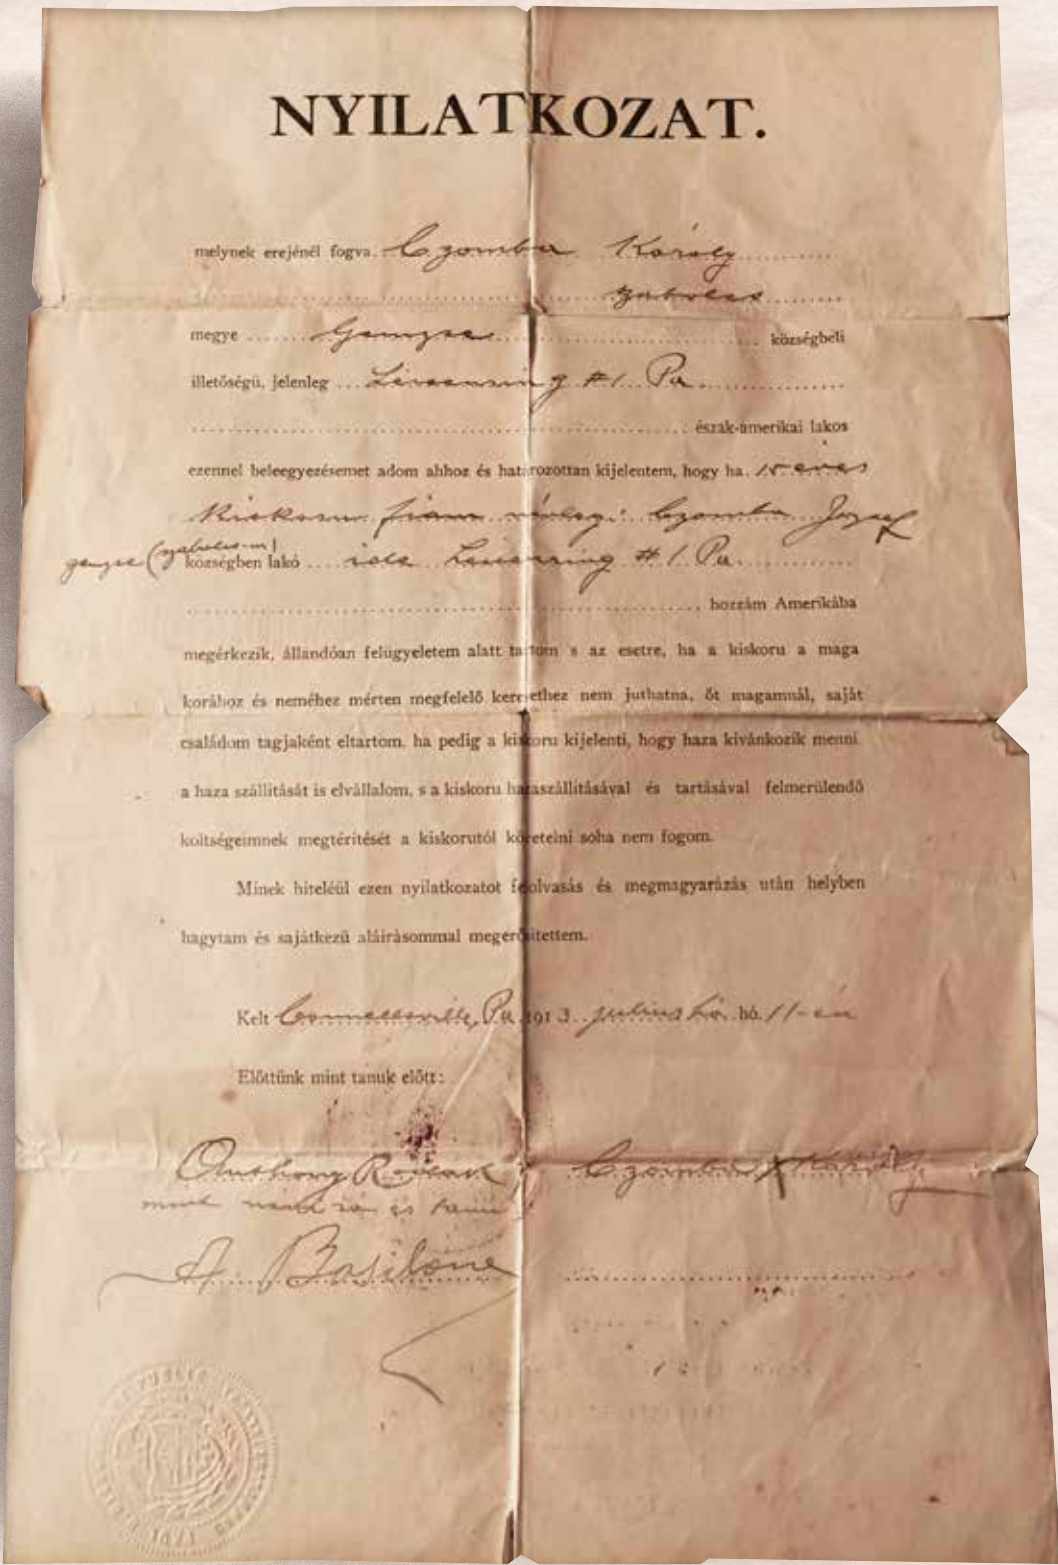 NYILATKOZAT.
melynek erejénél fogva Czomba Károly
Szabolcs
megye Gemzse községbeli
illetőségü, jelenleg Leisenring #1 Pa.
észak-amerikai lakos
ezennel beleegyezésemet adom ahhoz és határozottan kijelentem, hogy ha 15 éves
Kiskoru fiam névlegi Czomba Jozsef
gemzse (szabolcs-m) községben lakó ide Leisenring #1. Pa.
hozzám Amerikába
megérkezik, állandóan felügyeletem alatt tartom s az esetre, ha a kiskoru a maga
korához és neméhez mérten megfelelő keresethez nem juthatna, őt magamnál, saját
családom tagjaként eltartom, ha pedig a kiskoru kijelenti, hogy haza kivánkozik menni
a haza szállitását is elvállalom, s a kiskoru hazaszállitásával és tartásával felmerülendő
költségeimnek megtéritését a kiskorutól követelni soha nem fogom.
Minek hiteléül ezen nyilatkozatot felolvasás és megmagyarázás után helyben
hagytam és sajátkezü aláirásommal megerősitettem.
Kelt Connellsville, Pa 1913. julius hó hó. 11-én
Előttünk mint tanuk előtt:
Anthony Rodak Czomba X Károly
mint név iró és tanu
A. Basilone